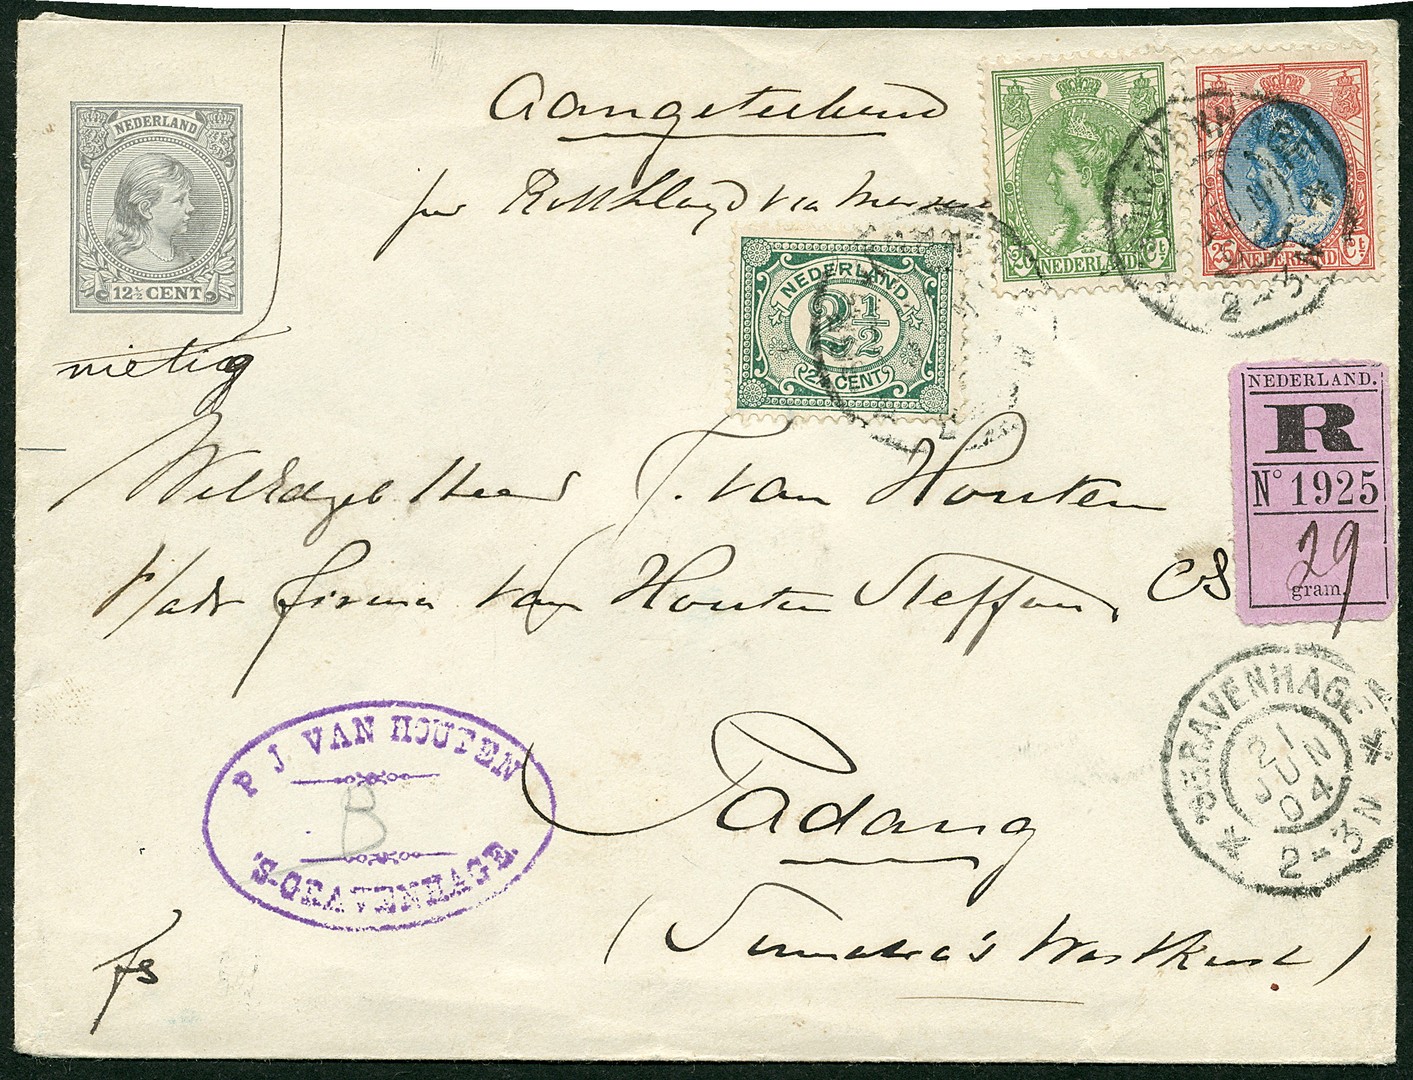 NEDERLAND
12½ CENT
nietig
Aangeteekend
per Rott Lloyd via Marseille
20 Ct
NEDERLAND
25 Ct
NEDERLAND
2-3N
NEDERLAND.
2½
2½ CENT
NEDERLAND.
R
No 1925
29
gram.
WelEdgeb Heer J. van Houten
p/adr firma van Houten Steffan & Co
Padang
(Sumatra's Westkust)
P. J. VAN HOUTEN
B
'S-GRAVENHAGE.
'SGRAVENHAGE
21
JUN
04
2-3N
fs